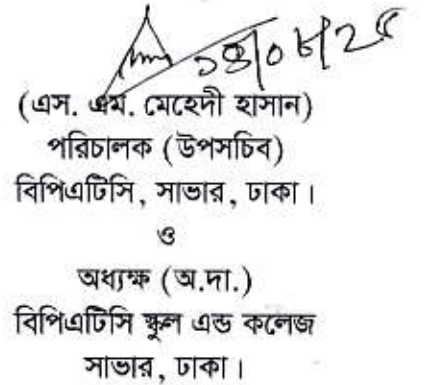 ১৪/০৮/২৫
(এস. এম. মেহেদী হাসান)
পরিচালক (উপসচিব)
বিপিএটিসি, সাভার, ঢাকা।
ও
অধ্যক্ষ (অ.দা.)
বিপিএটিসি স্কুল এন্ড কলেজ
সাভার, ঢাকা।